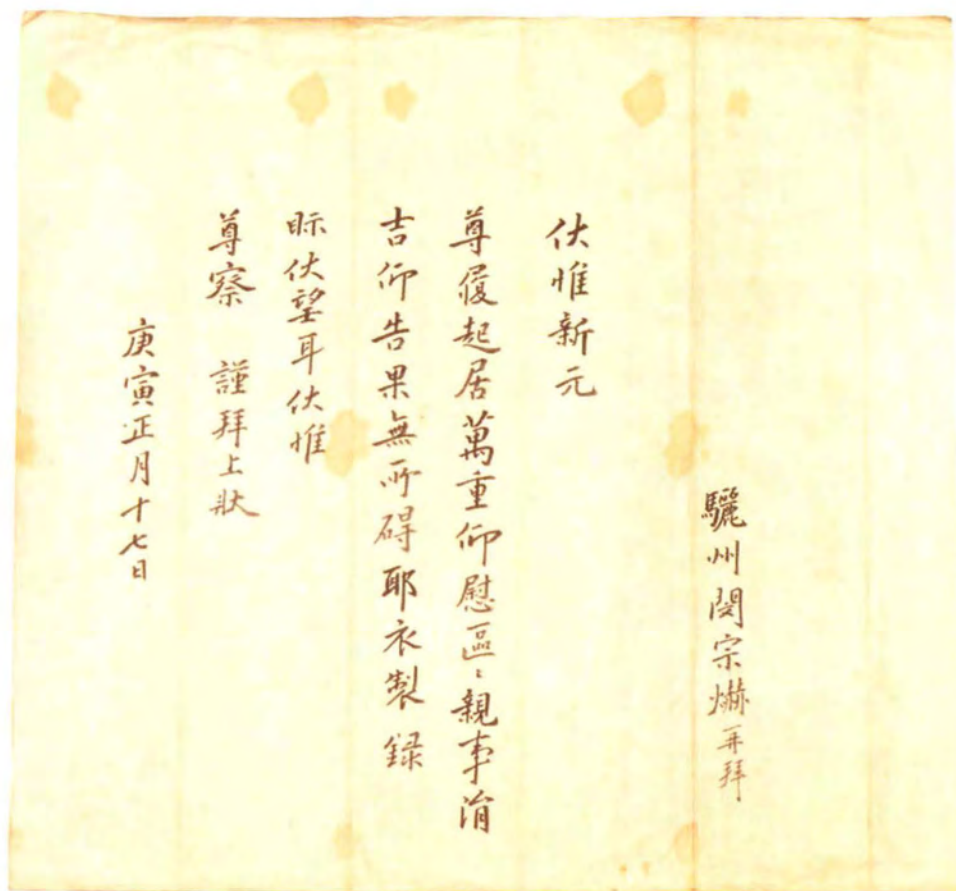 驪州閔宗爀再拜
伏惟新元
尊履起居萬重仰慰區〻親事涓
吉仰告果無所碍耶衣製錄
眎伏望耳伏惟
尊察 謹拜上狀
庚寅正月十七日